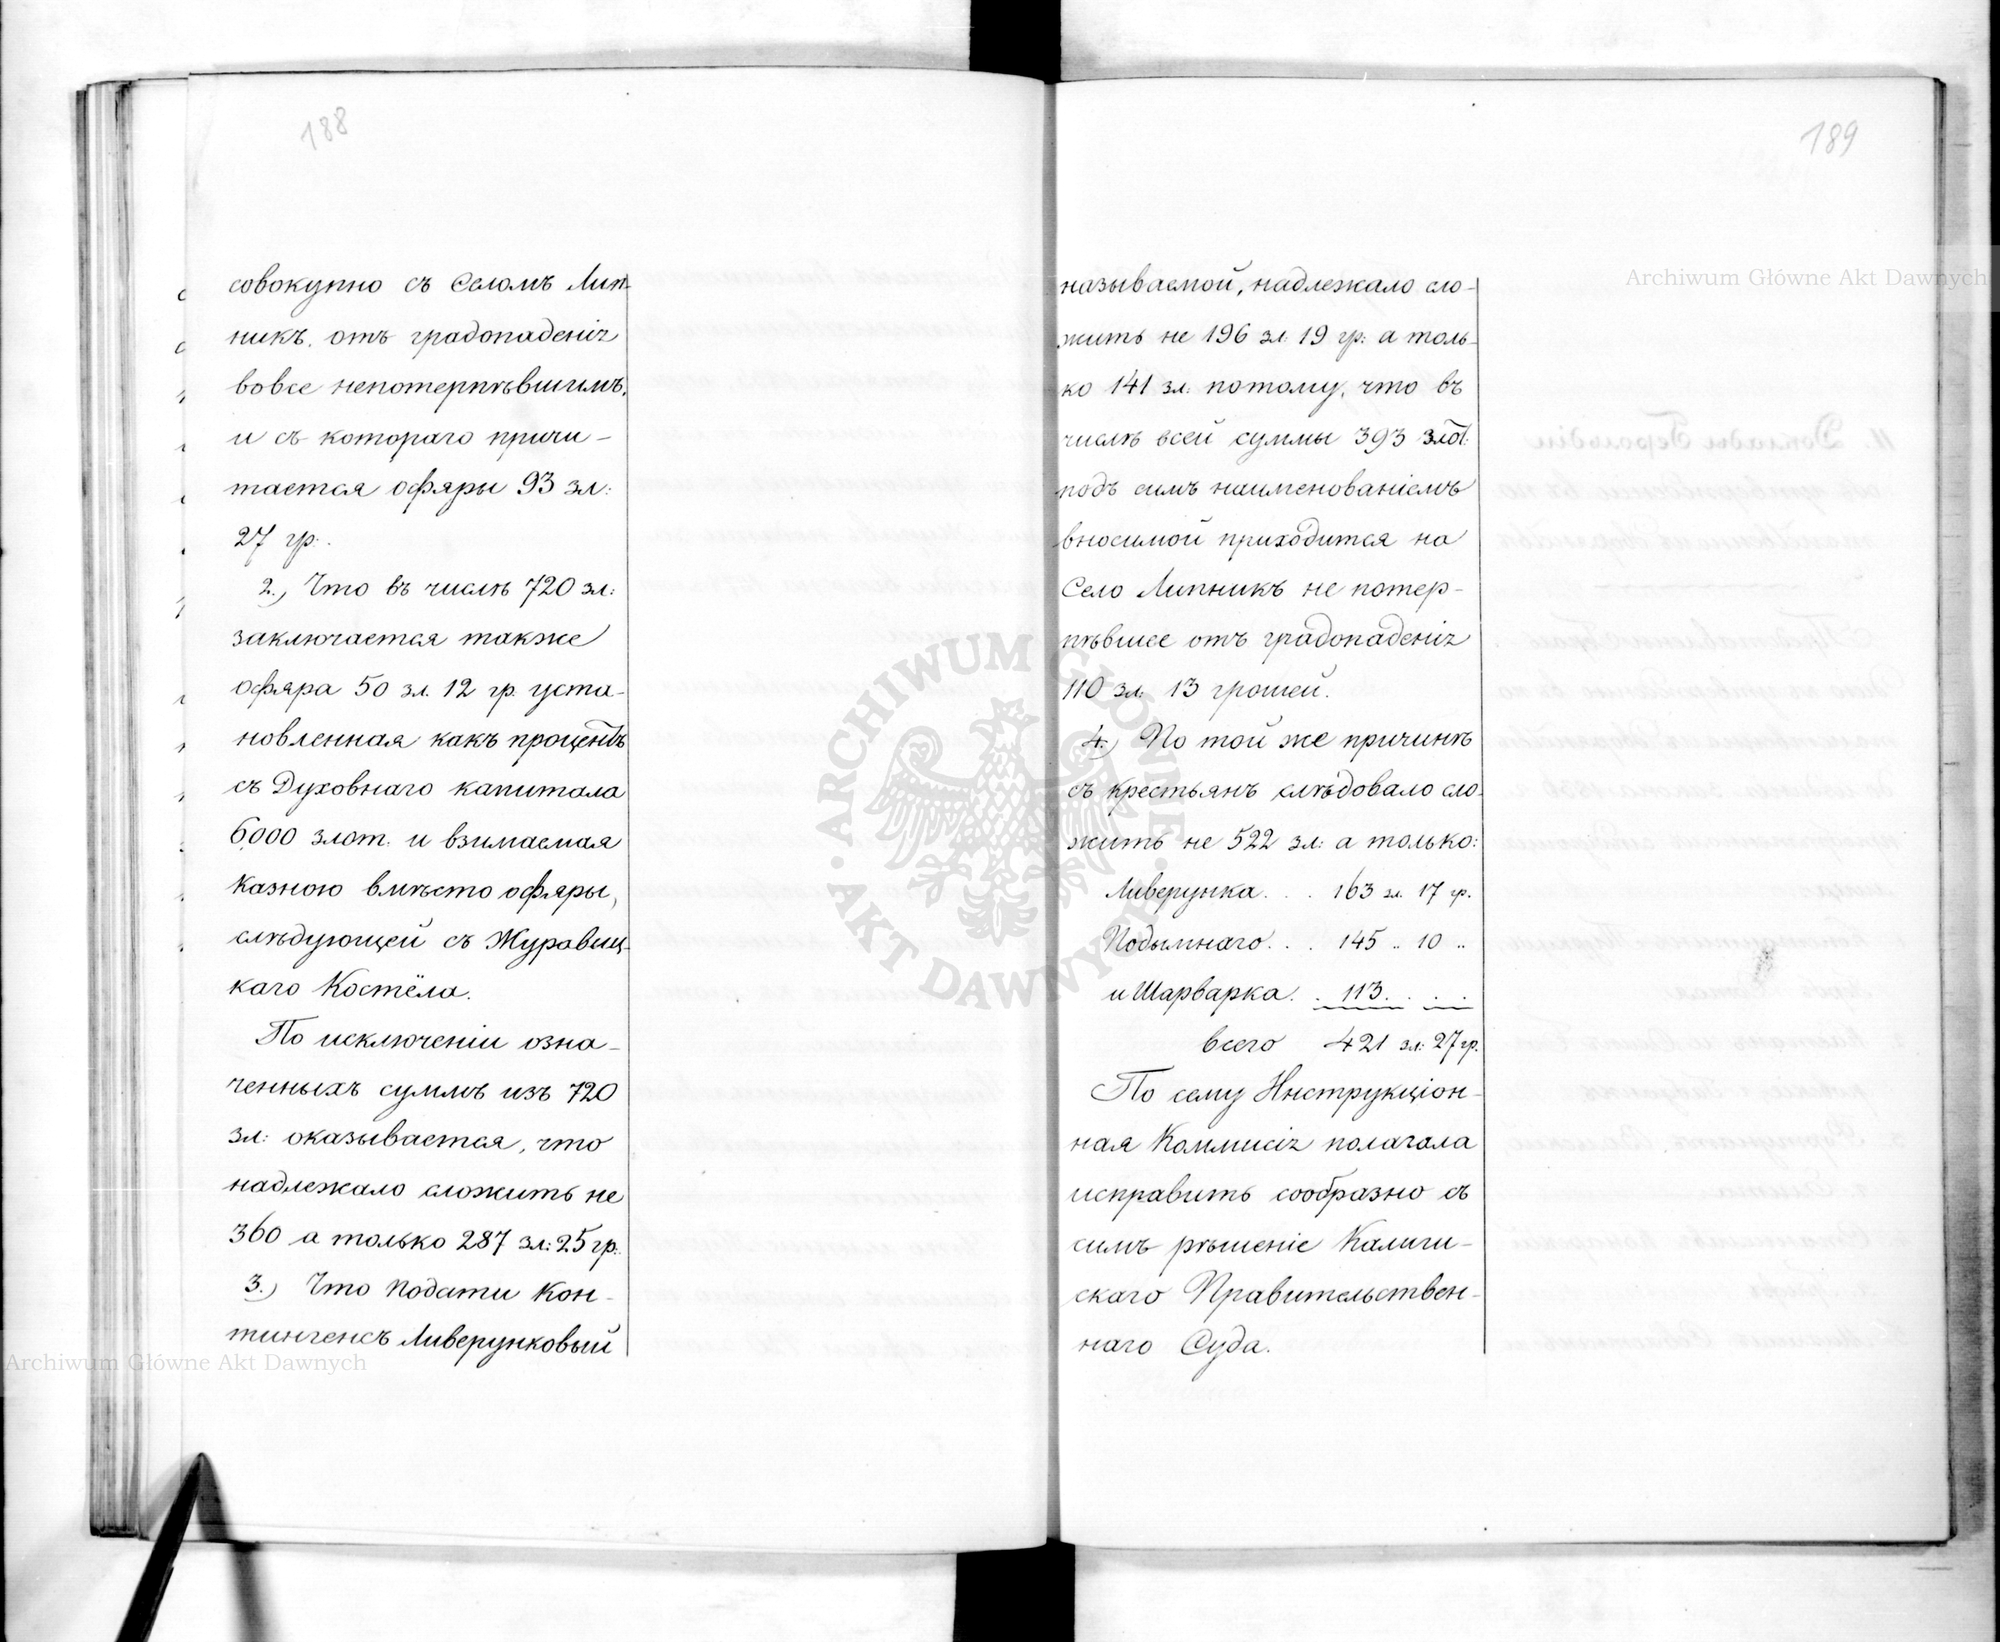 188
совокупно съ Селомъ Лип-
никъ. отъ градопаденія
вовсе непотерпѣвшимъ,
и съ котораго причи-
тается офяры 93 зл:
27 гр:.
2.) Что въ числѣ 720 зл:
заключается также
офяра 50 зл. 12 гр. уста-
новленная какъ процентъ
съ Духовнаго капитала
6000 злот. и взимаемая
Казною вмѣсто офяры,
слѣдующей съ Журавиц-
каго Костёла.
По исключеніи озна-
ченныхъ суммъ изъ 720
зл: оказывается, что
надлежало сложить не
360 а только 287 зл: 25 гр:
3.) Что Подати Кон-
тингенсъ Ливерунковый
189
называемой, надлежало сло-
жить не 196 зл. 19 гр: а толь-
ко 141 зл: потому, что въ
числѣ всей суммы 393 злот:
подъ симъ наименованіемъ
вносимой приходится на
Село Липникъ не потер-
пѣвшее отъ градопаденія
110 зл: 13 грошей.
4.) По той же причинѣ
съ крестьянъ слѣдовало сло-
жить не 522 зл: а только:
Ливерунка. . . 163 зл. 17 гр.
Подымнаго. . . 145 .. 10 ..
и Шарварка. . 113. . . .
всего 421 зл: 27 гр.
По сему Инструкціон-
ная Коммисія полагала
исправить сообразно съ
симъ рѣшеніе Калиш-
скаго Правительствен-
наго Суда.
Archiwum Główne Akt Dawnych
Archiwum Główne Akt Dawnych
ARCHIWUM GŁÓWNE · AKT DAWNYCH ·